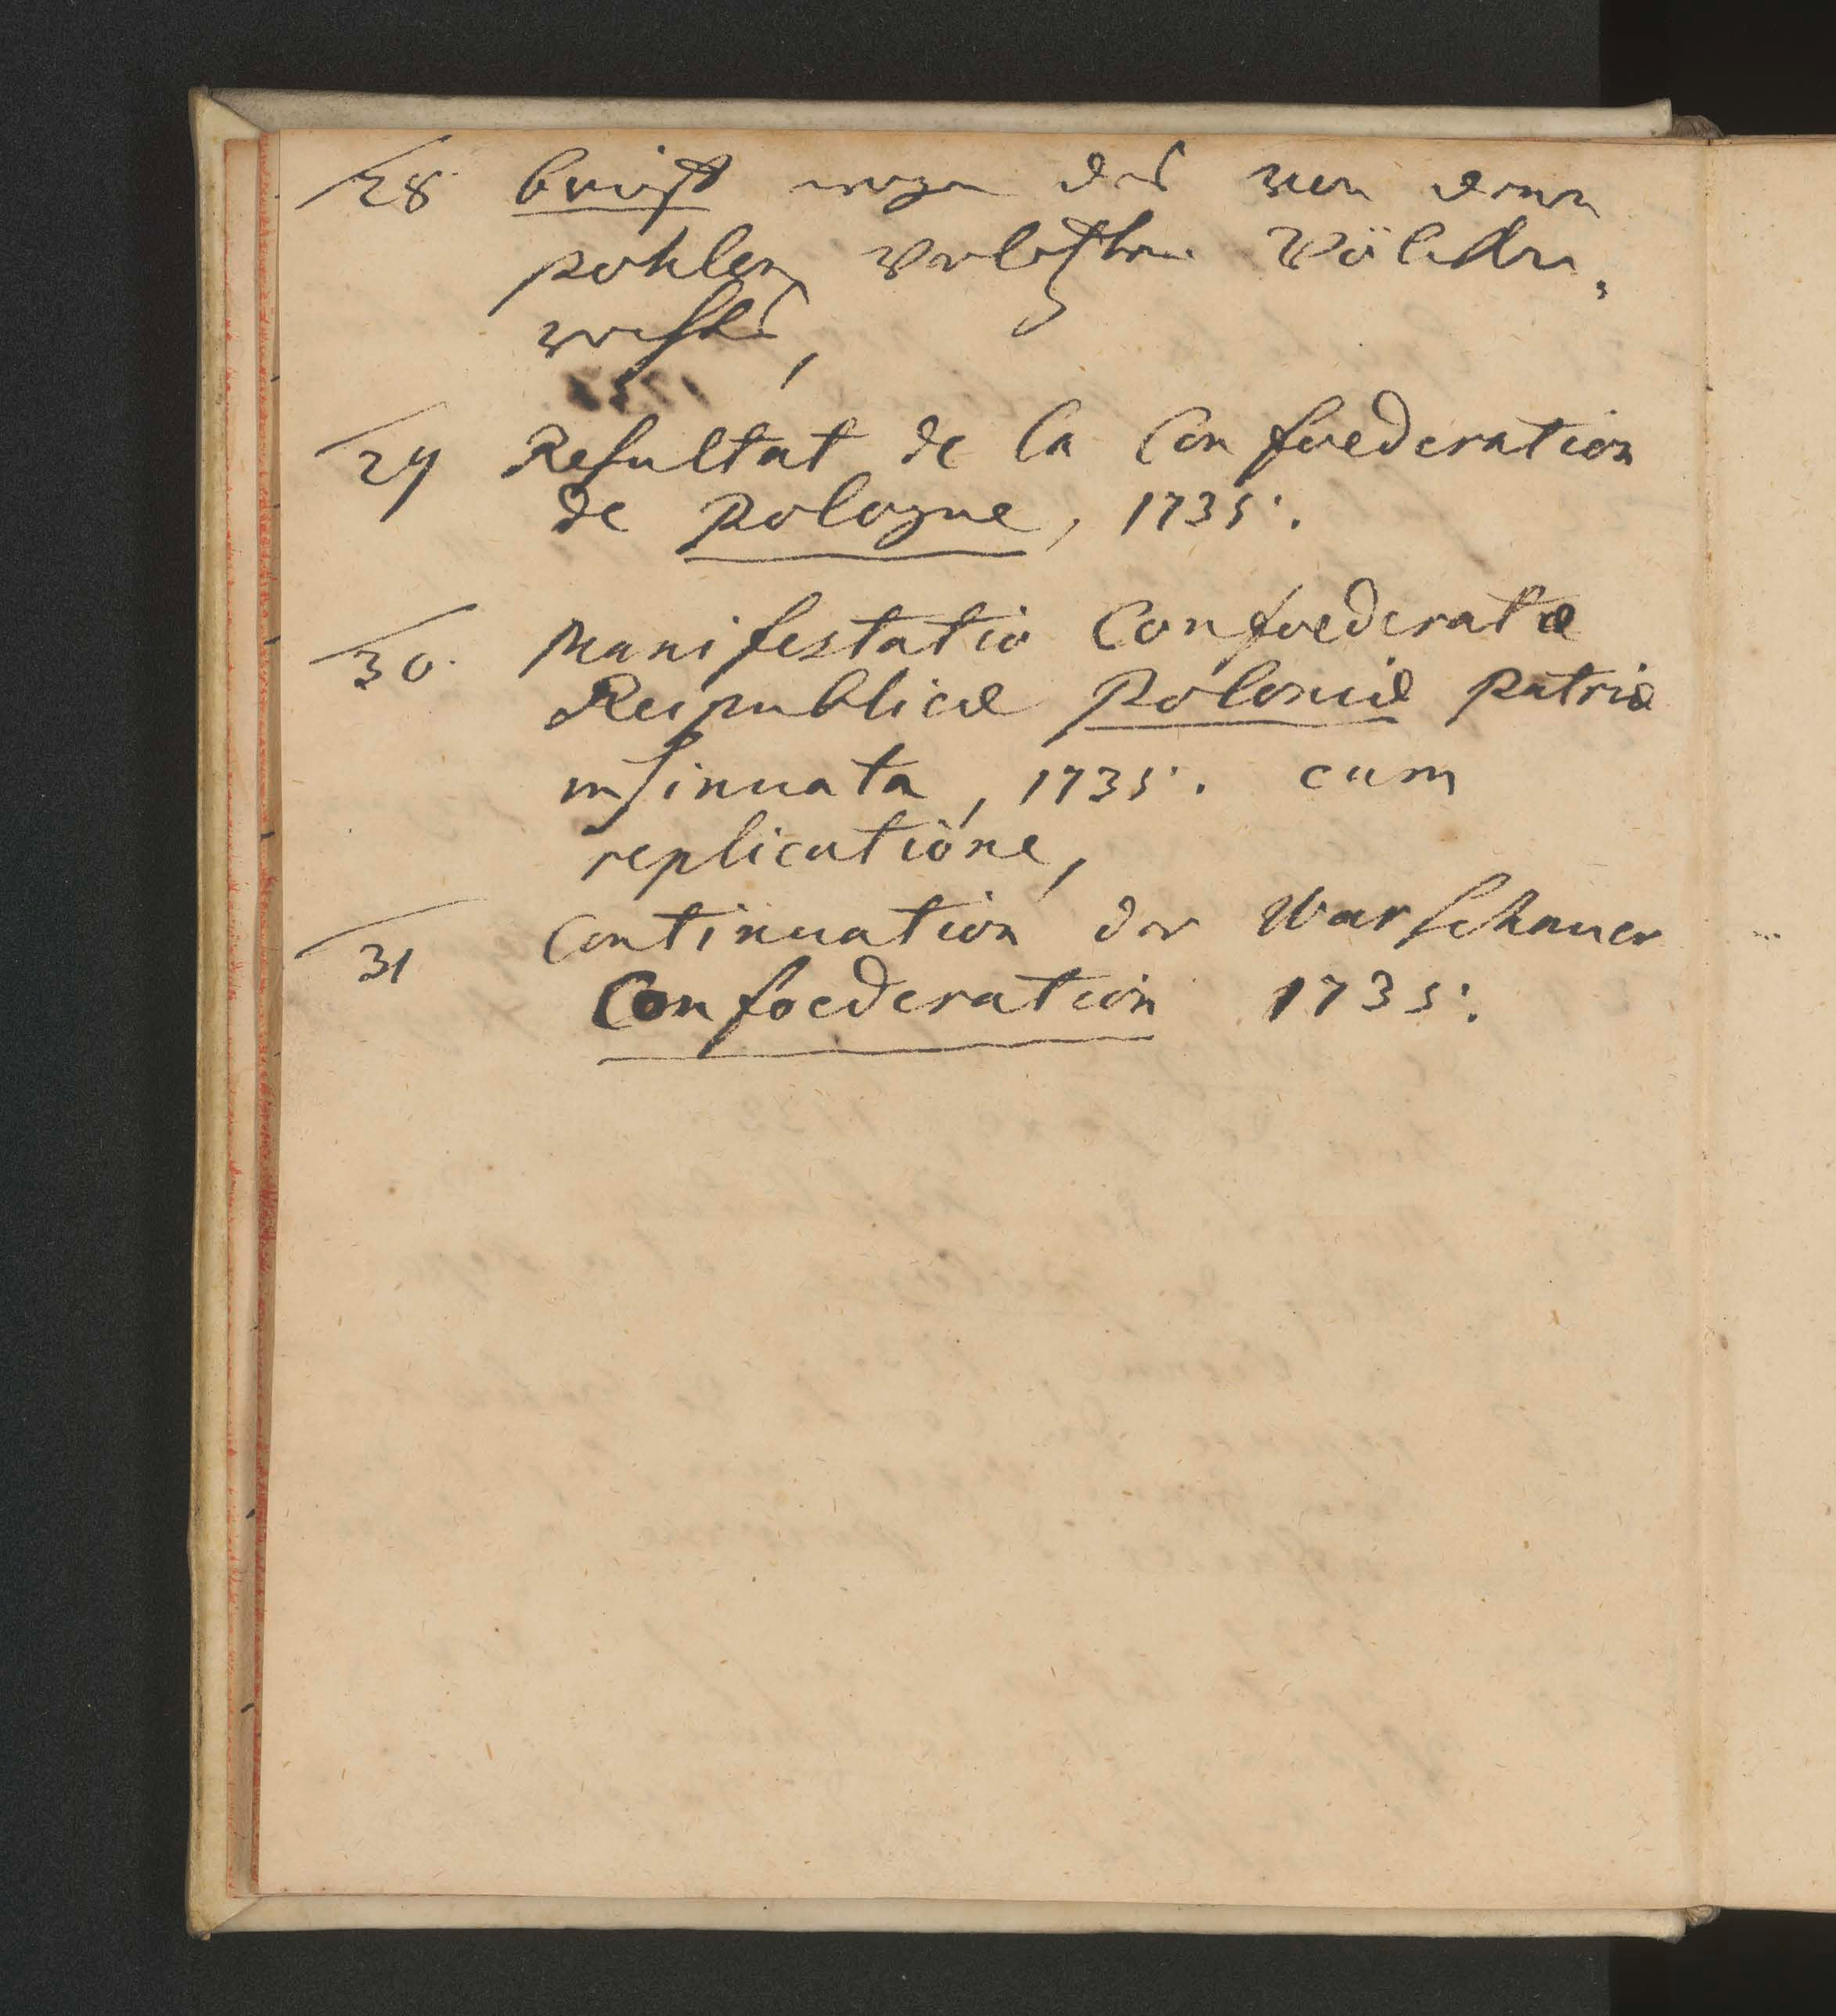 28. brieff wegen des von denen
pohlen verletzten Völcker,
rechts,
29 Resultat de la Confoederation
de pologne, 1735.
30. Manifestatio Confoederatæ
Reipublicæ Poloniæ patriæ
insinuata, 1735. cum
replicatione,
31 Continuation der Warschauer
Confoederation 1735.